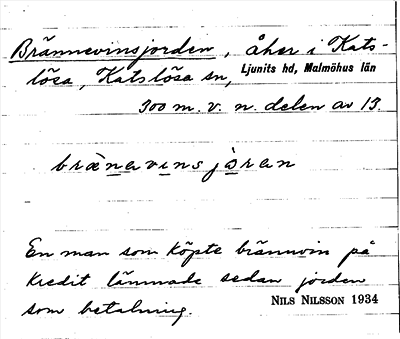 Brännevinsjorden, åker i Kats-
lösa, Katslösa sn, Ljunits hd, Malmöhus län
300 m. v. n. delen av 13.
brænavinsjöran
En man som köpte brännvin på
kredit lämnade sedan jorden
som betalning. NILS NILSSON 1934